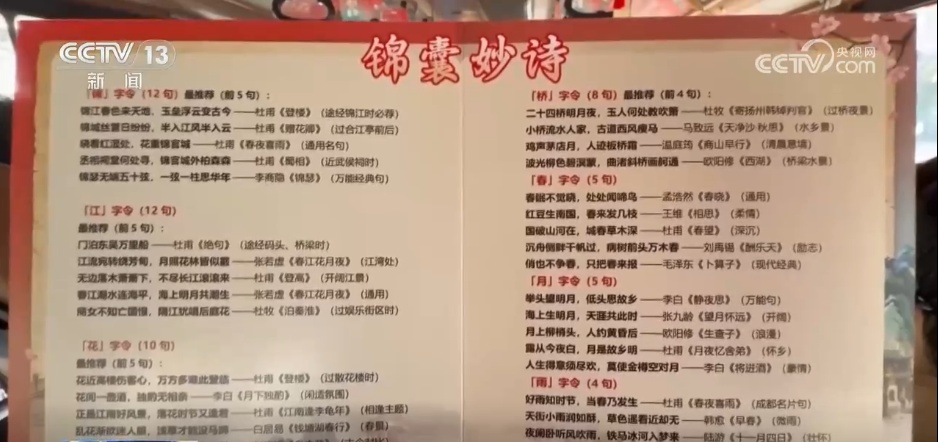 CCTV 13
新闻
央视网
CCTV.com
锦囊妙诗
「锦」字令（12 句）最推荐（前 5 句）：
锦江春色来天地，玉垒浮云变古今——杜甫《登楼》（途经锦江时必荐）
锦城丝管日纷纷，半入江风半入云——杜甫《赠花卿》（过合江亭前后）
晓看红湿处，花重锦官城——杜甫《春夜喜雨》（通用名句）
丞相祠堂何处寻，锦官城外柏森森——杜甫《蜀相》（近武侯祠时）
锦瑟无端五十弦，一弦一柱思华年——李商隐《锦瑟》（万能经典句）
「江」字令（12 句）
最推荐（前 5 句）：
门泊东吴万里船——杜甫《绝句》（途经码头、桥梁时）
江流宛转绕芳甸，月照花林皆似霰——张若虚《春江花月夜》（江湾处）
无边落木萧萧下，不尽长江滚滚来——杜甫《登高》（开阔江景）
春江潮水连海平，海上明月共潮生——张若虚《春江花月夜》（通用）
商女不知亡国恨，隔江犹唱后庭花——杜牧《泊秦淮》（过娱乐街区时）
「花」字令（10 句）
最推荐（前 5 句）：
花近高楼伤客心，万方多难此登临——杜甫《登楼》（过散花楼时）
花间一壶酒，独酌无相亲——李白《月下独酌》（闲适氛围）
正是江南好风景，落花时节又逢君——杜甫《江南逢李龟年》（相逢主题）
乱花渐欲迷人眼，浅草才能没马蹄——白居易《钱塘湖春行》（春景）
「桥」字令（8 句） 最推荐（前 4 句）：
二十四桥明月夜，玉人何处教吹箫——杜牧《寄扬州韩绰判官》（过桥夜景）
小桥流水人家，古道西风瘦马——马致远《天净沙·秋思》（水乡景）
鸡声茅店月，人迹板桥霜——温庭筠《商山早行》（清晨意境）
波光柳色碧溟蒙，曲渚斜桥画舸通——欧阳修《西湖》（桥梁水景）
「春」字令（5 句）
春眠不觉晓，处处闻啼鸟——孟浩然《春晓》（通用）
红豆生南国，春来发几枝——王维《相思》（柔情）
国破山河在，城春草木深——杜甫《春望》（深沉）
沉舟侧畔千帆过，病树前头万木春——刘禹锡《酬乐天》（励志）
俏也不争春，只把春来报——毛泽东《卜算子》（现代经典）
「月」字令（5 句）
举头望明月，低头思故乡——李白《静夜思》（万能句）
海上生明月，天涯共此时——张九龄《望月怀远》（开阔）
月上柳梢头，人约黄昏后——欧阳修《生查子》（浪漫）
露从今夜白，月是故乡明——杜甫《月夜忆舍弟》（怀乡）
人生得意须尽欢，莫使金樽空对月——李白《将进酒》（豪情）
「雨」字令（4 句）
好雨知时节，当春乃发生——杜甫《春夜喜雨》（成都名片句）
天街小雨润如酥，草色遥看近却无——韩愈《早春》（微雨）
夜阑卧听风吹雨，铁马冰河入梦来——陆游《十一月四日》（壮怀）